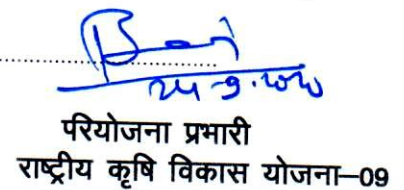 24-9-2020
परियोजना प्रभारी
राष्ट्रीय कृषि विकास योजना–09